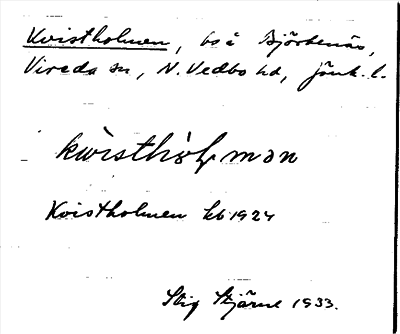 Kvistholmen, bs å Björkenäs,
Vireda sn, N. Vedbo hd, Jönk. l.
Kvistholmen kb 1924
Stig Stjärne 1933.